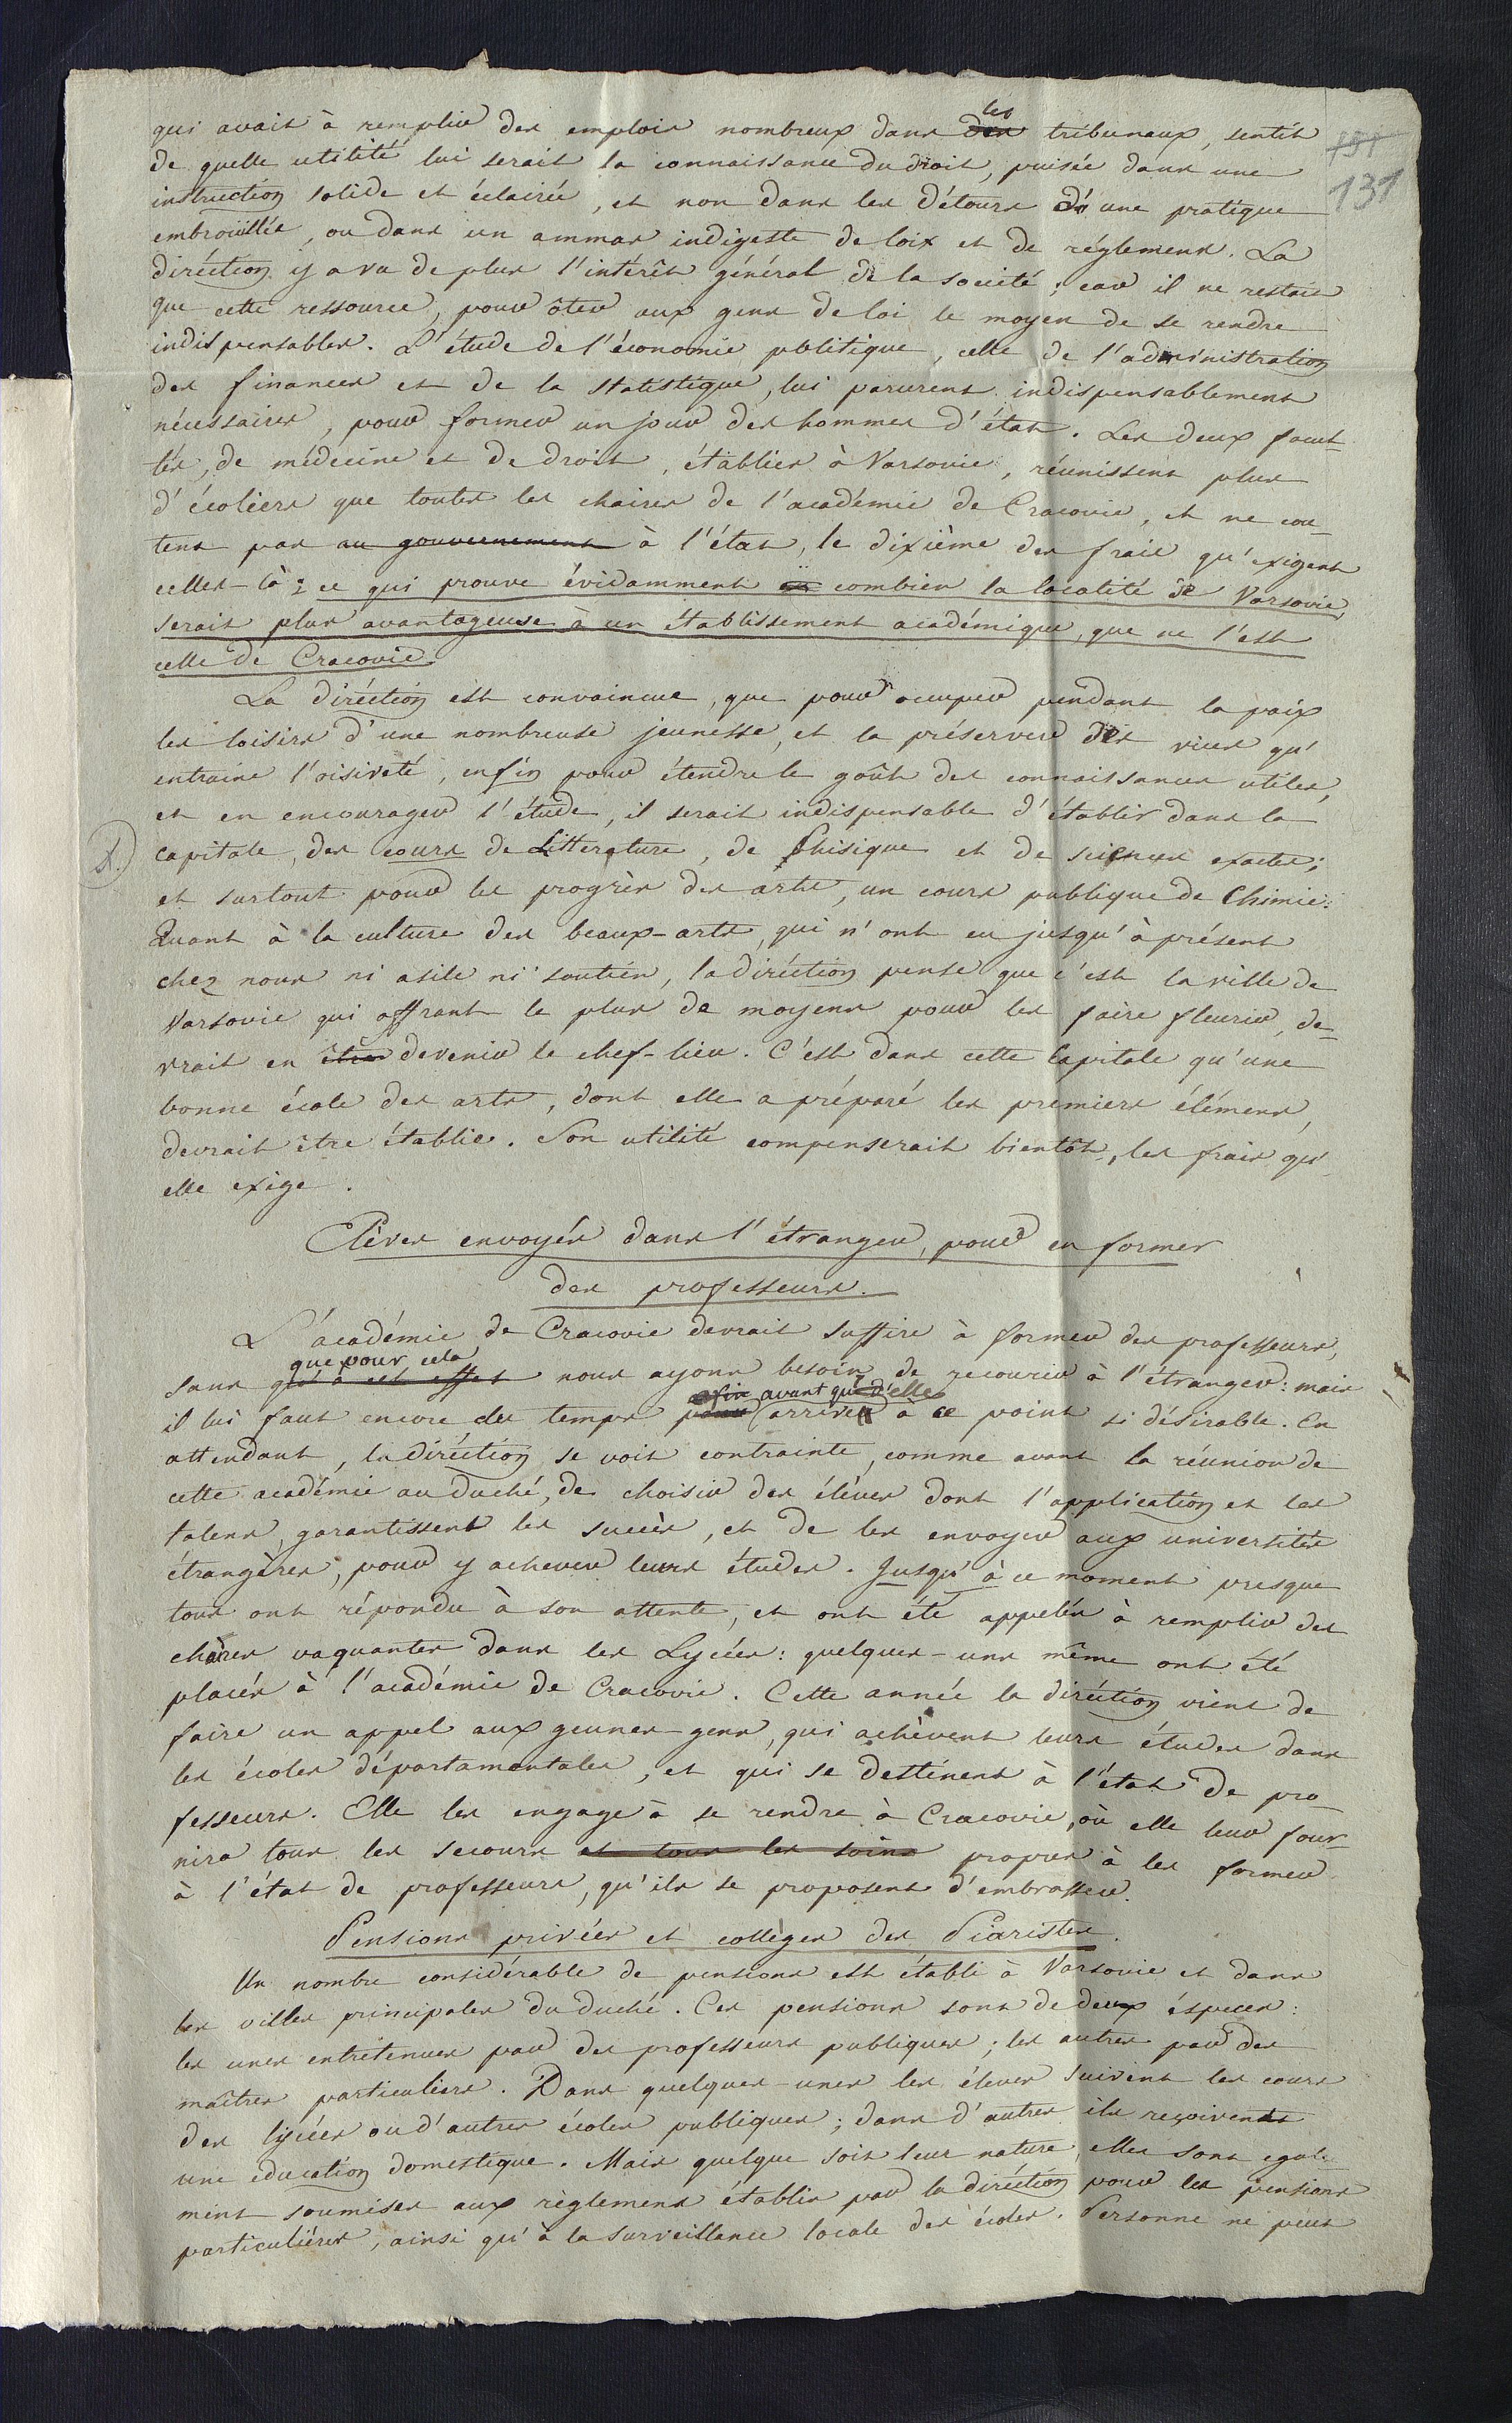 qui avait à remplir des emplois nombreux dans des les tribunaux, sentit
de quelle utilité lui serait la connaissance du droit, puisée dans une
131
131
instruction solide et éclairée, et non dans les détours d'une pratique
embrouillée, ou dans un ammas indigeste de loix et de réglemens. La
diréction y a vu de plus l'intérêt général de la société; car il ne restait
que cette ressource, pour ôter aux gens de loi le moyen de se rendre
indispensables. L'étude de l'économie politique, celle de l'administration
des finances et de la statistique, lui parurent indispensablement
nécessaires, pour former un jour des hommes d'état. Les deux facul-
tés, de médecine et de droit, établies à Varsovie, réunissent plus
d'écoliers que toutes les chaires de l'académie de Cracovie, et ne cou-
tent pas au gouvernement à l'état, le dixième des frais qu'exigent
celles-là; ce qui prouve évidamment combien la localité de Varsovie
serait plus avantageuse à un établissement académique, que ne l'est
celle de Cracovie.
La diréction est convaincue, que pour occuper pendant la paix
les loisirs d'une nombreuse jeunesse, et la préserver des vices qu'
entraine l'oisiveté, enfin pour étendre le goût des connaissances utiles,
et en encourager l'étude, il serait indispensable d'établir dans la
capitale, des cours de Litterature, de Phisique et de sciences exactes;
et surtout pour les progrès des arts, un cours publique de Chimie.
Quant à la culture des beaux-arts, qui n'ont eu jusqu'à présent
chez nous ni asile ni soutien, la diréction pense que c'est la ville de
Varsovie qui offrant le plus de moyens pour les faire fleurir, de-
vrait en être devenir le chef-lieu. C'est dans cette Capitale qu'une
bonne école des arts, dont elle a préparé les premiers élémens,
devrait être établie. Son utilité compenserait bientôt, les frais qu'
elle exige.
Elèves envoyés dans l'étranger, pour en former
des professeurs.
L'académie de Cracovie devrait suffire à former des professeurs,
que pour cela
sans qu'à cet effet nous ayons besoin de recourir à l'étranger: mais
afin avant qu'elle
il lui faut encore du temps pour arrive à ce point si désirable. En
attendant, la diréction se voit contrainte, comme avant la réunion de
cette académie au duché, de choisir des élèves dont l'application et les
talens, garantissent les succès, et de les envoyer aux universités
étrangères, pour y achever leurs études. Jusqu'à ce moment presque
tous ont répondu à son attente, et ont été appelés à remplir des
chaires vaquantes dans les Lycées: quelques-uns même ont été
placés à l'académie de Cracovie. Cette année la diréction vient de
faire un appel aux jeunes-gens, qui achèvent leurs études dans
les écoles départamentales, et qui se destinent à l'état de pro-
fesseurs. Elle les engage à se rendre à Cracovie, où elle leur four-
nira tous les secours et tous les soins propres à les former
à l'état de professeurs, qu'ils se proposent d'embrasser.
Pensions privées et collèges des Piaristes.
Un nombre considérable de pensions est établi à Varsovie et dans
les villes principales du duché. Ces pensions sont de deux éspeces:
les unes entretenues par des professeurs publiques; les autres par des
maîtres particuliers. Dans quelques-unes les éleves suivent les cours
des lycées ou d'autres écoles publiques; dans d'autres ils reçoivent
une education domestique. Mais quelque soit leur nature, elles sont egale
ment soumises aux règlemens établis par la diréction pour les pensions
particuliéres, ainsi qu'à la surveillance locale des écoles. Personne ne peut